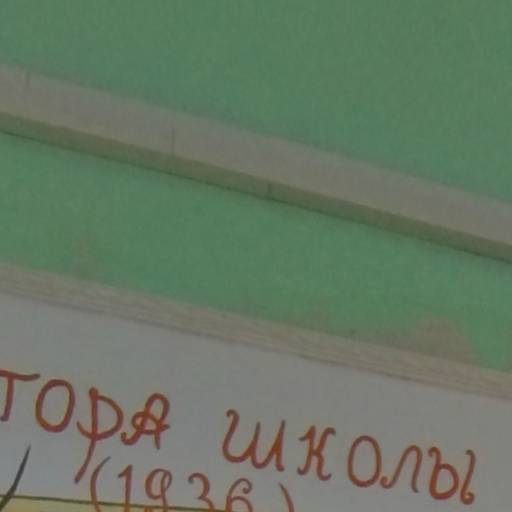 тора школы
(1936)